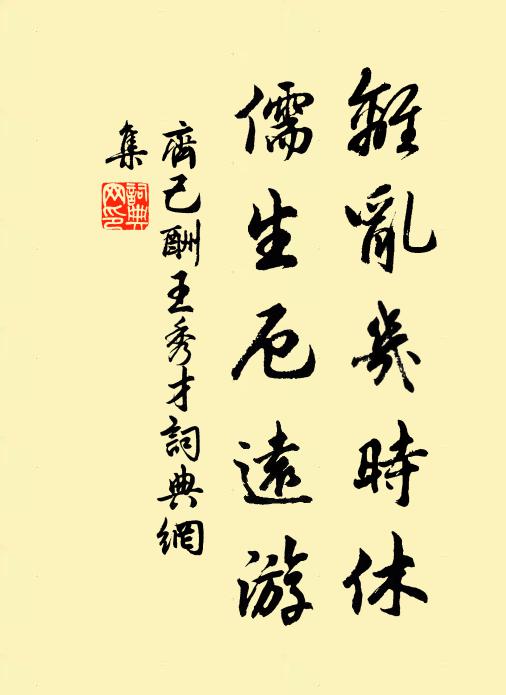 離亂幾時休
儒生厄遠游
齊己酬王秀才詞典網
集
詞典網印